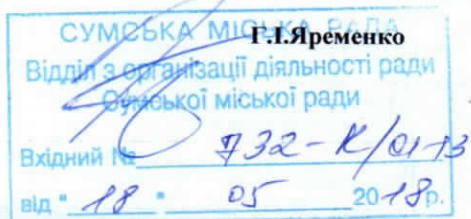 СУМСЬКА МІСЬКА РАДА
Г.І.Яременко
Відділ з організації діяльності ради
Сумської міської ради
Вхідний № 732-К/01-13
від "18" 05 2018р.